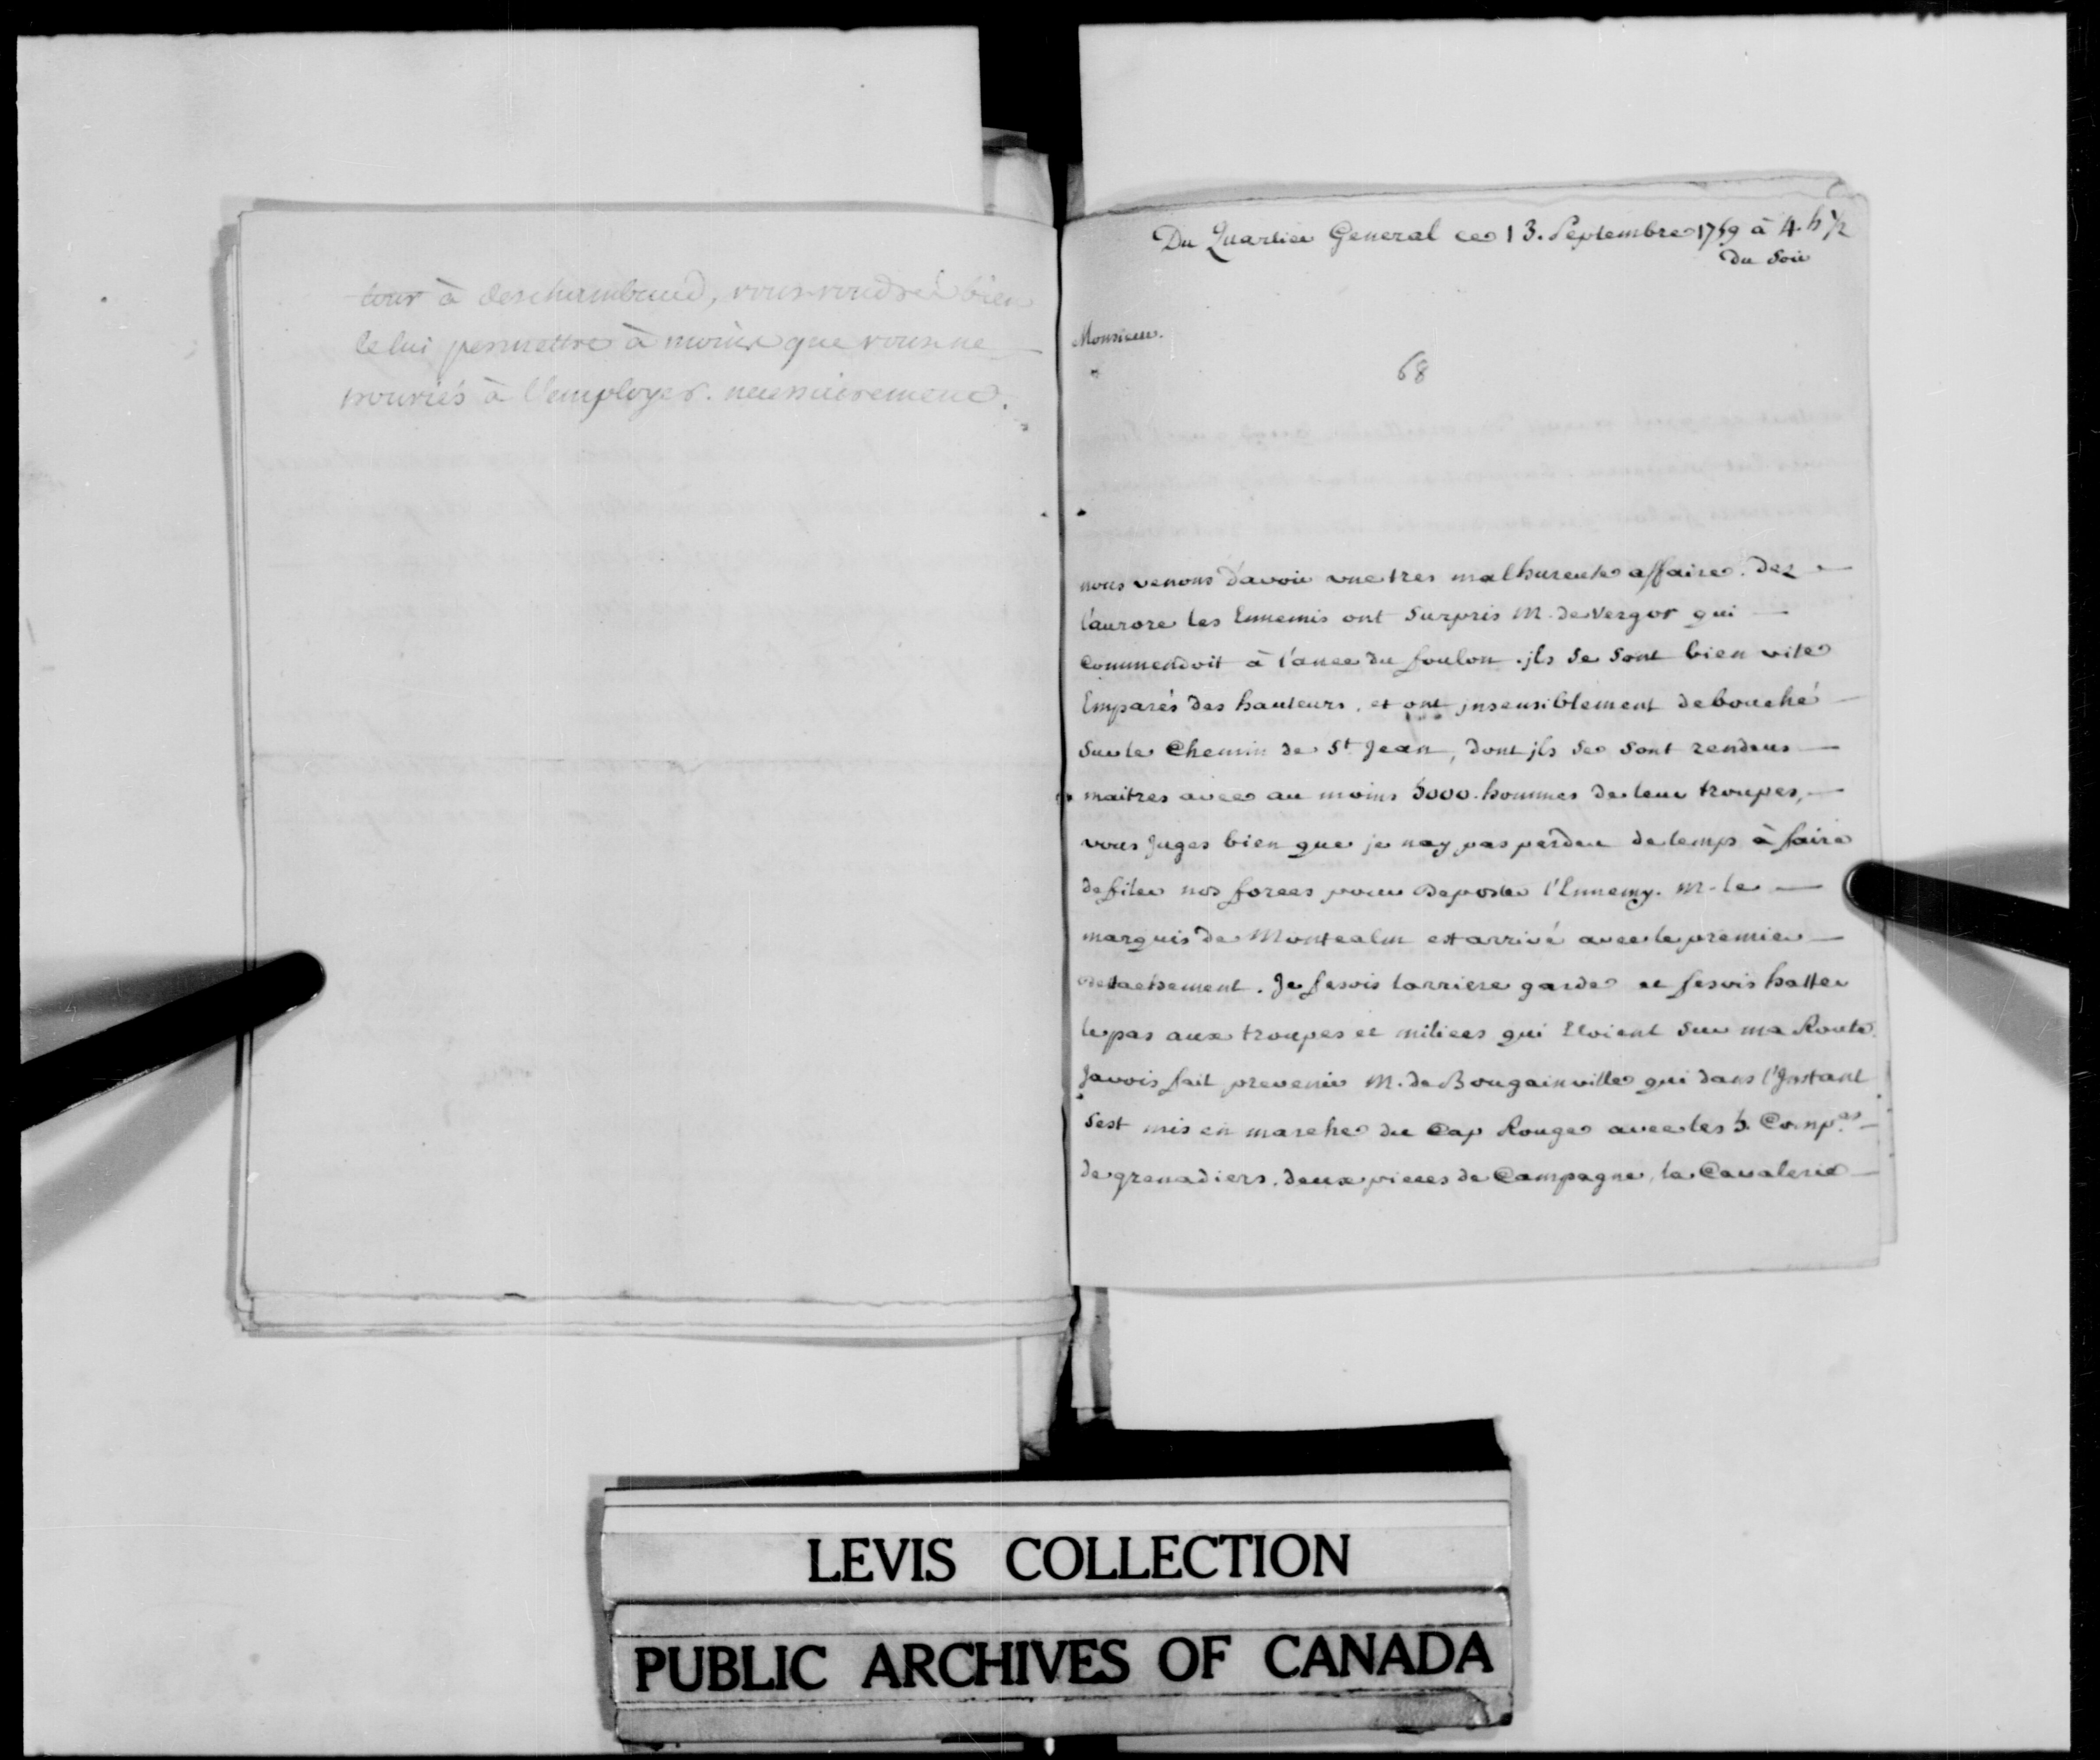 tour à deschambaud, vous voudrés bien
le lui permettre à moins que vous ne
trouviés à l'employer necessairement.
Du Quartier General ce 13. Septembre 1759 à 4. h 1/2
Du Soir
Monsieur.
68
nous venons d'avoir une tres malhureuse affaire. Dez
l'aurore les Ennemis ont Surpris M. de Vergor qui
Commendoit à l'ance du foulon. jls se sont bien vite
Emparés des hauteurs, et ont jnsensiblement debouché
Sur le Chemin de St. Jean, dont jls se sont rendus
maitres avec au moins 5000. hommes de leur troupes,
vous Juges bien que je nay pas perdu de temps à faire
defiler nos forces pour deposter l'Ennemy. M. le
marquis de Montcalm est arrivé avec le premier
detachement. Je fesois larriere garde et fesois hatter
le pas aux troupes et milices qui Etoient Sur ma Route
Javois fait prevenir M. de Bougainville qui dans l'Jnstant
Sest mis en marche du Cap Rouge avec les 5. Comp.es
de grenadiers, deux pieces de Campagne, la Cavalerie
LEVIS COLLECTION
PUBLIC ARCHIVES OF CANADA